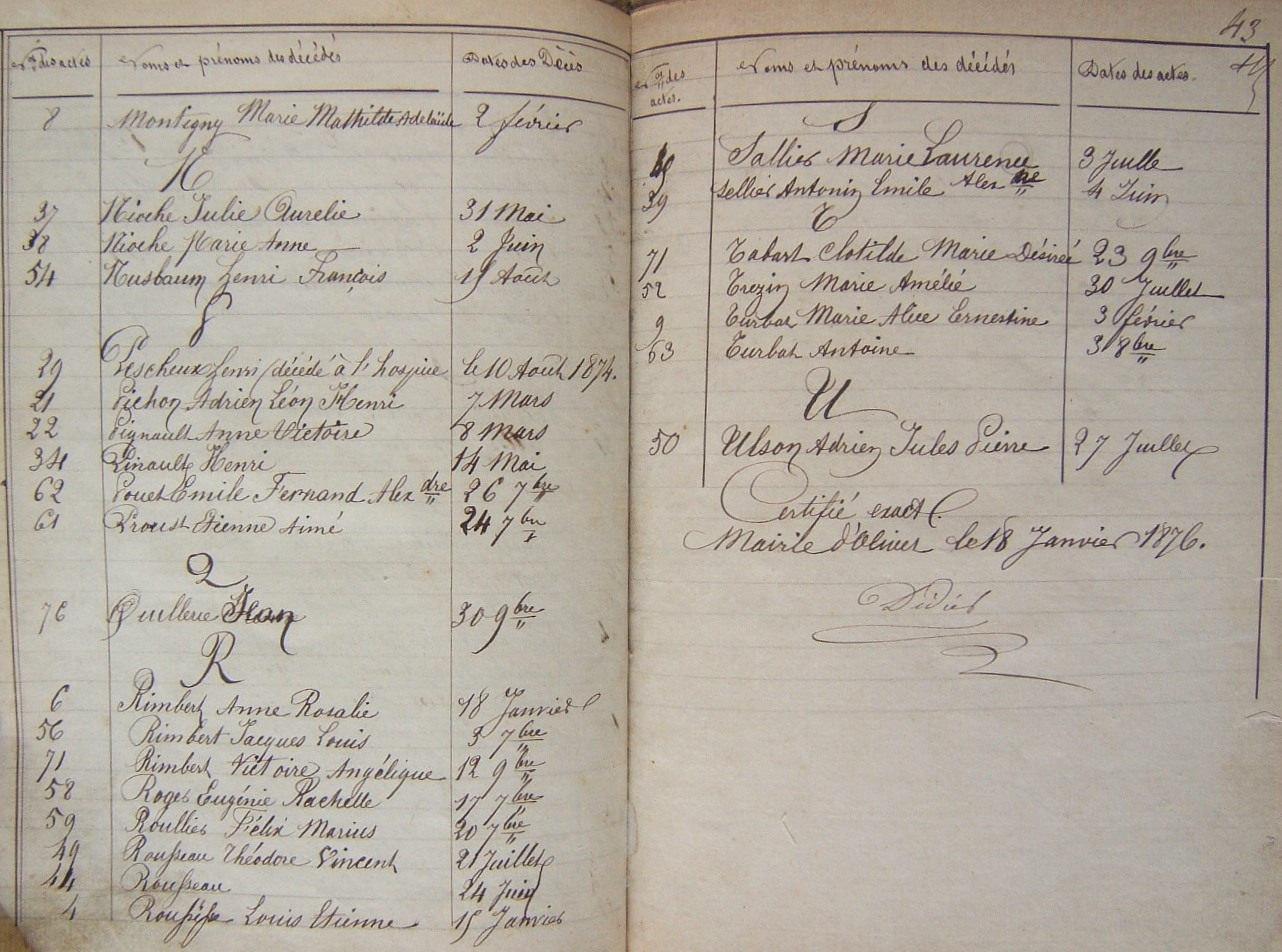 Nos des actes Noms et prénoms des décédés Dates des Décès
8 Montigny Marie Mathilde Adelaïde 2 février
N
37 Nioche Julie Aurelie 31 Mai
38 Nioche Marie Anne 2 Juin
54 Nusbaum Henri François 19 Août
P
29 Pescheux Henri (décédé à l'hospice le 10 Août 1874.
21 Pichon Adrien Léon Henri 7 Mars
22 Pignault Anne Victoire 8 Mars
34 Pinault Henri 14 Mai
62 Pouet Emile Fernand Alexdre 26 7bre
61 Proust Etienne Aimé 24 7bre
Q
76 Quillerie 30 9bre
R
6 Rimbert Anne Rosalie 18 Janvier
56 Rimbert Jacques Louis 3 7bre
71 Rimbert Victoire Angélique 12 9bre
58 Roger Eugénie Rachelle 17 7bre
59 Roullier Félix Marius 20 7bre
49 Rousseau Théodore Vincent 21 Juillet
44 Rousseau 24 Juin
4 Louis Etienne 15 Janvier
43
Nos des actes. Noms et prénoms des décédés Dates des actes.
S
Sallier Marie Laurence 3 Juille
39 Sellier Antonin Emile Alexdre 4 Juin
T
71 Tabart Clotilde Marie Désirée 23 9bre
52 Trezin Marie Amélié 30 Juillet
9 Turbat Marie Alice Ernestine 3 février
63 Turbat Antoine 3 8bre
U
50 Ulson Adrien Jules Pierre 27 Juillet
Certifié exact.
Mairie d'Olivet le 18 Janvier 1876.
Didier